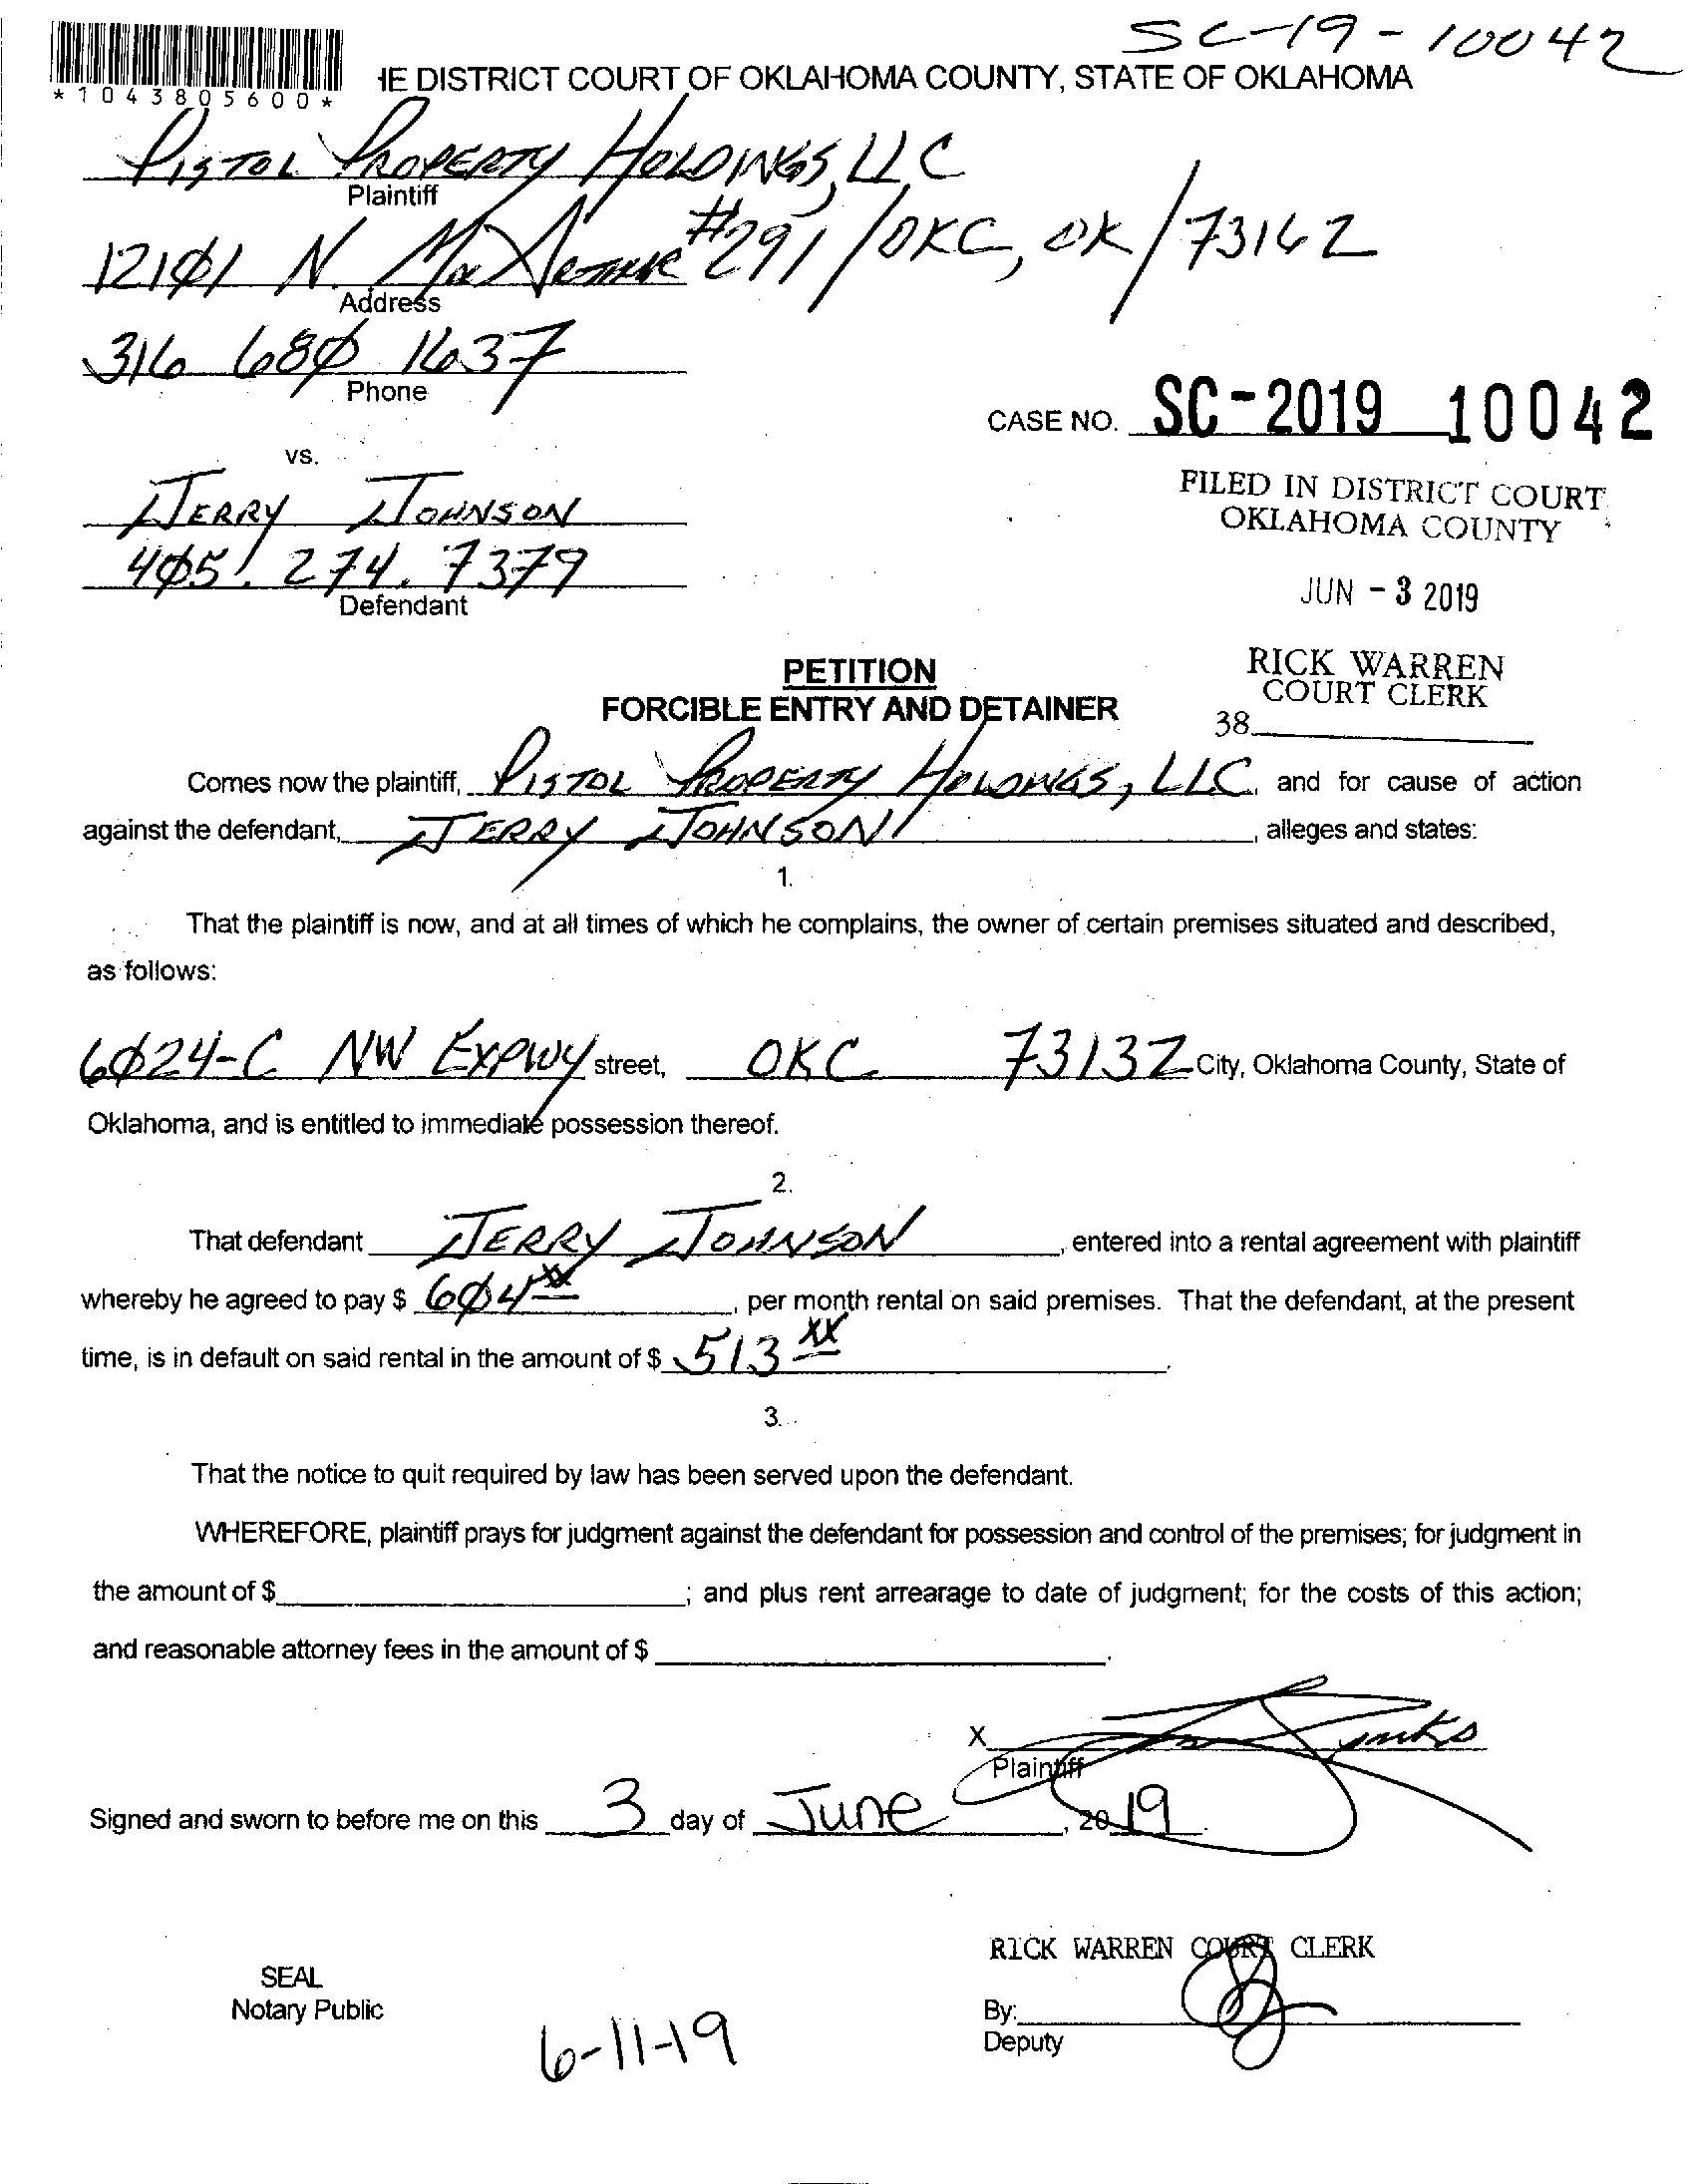 SC-19-10042
*1043805600*
IE DISTRICT COURT OF OKLAHOMA COUNTY, STATE OF OKLAHOMA
PISTOL PROPERTY HOLDINGS, LLC
Plaintiff
12101 N. MacArthur #291 / OKC, OK / 73162
Address
316 680 1637
Phone
CASE NO. SC-2019 10042
vs.
FILED IN DISTRICT COURT
OKLAHOMA COUNTY
JERRY JOHNSON
405. 274. 7379
Defendant
JUN - 3 2019
RICK WARREN
COURT CLERK
38
PETITION
FORCIBLE ENTRY AND DETAINER
Comes now the plaintiff, PISTOL PROPERTY HOLDINGS, LLC, and for cause of action
against the defendant, JERRY JOHNSON, alleges and states:
1.
That the plaintiff is now, and at all times of which he complains, the owner of certain premises situated and described,
as follows:
6024-C NW EXPWY street, OKC 73132 City, Oklahoma County, State of
Oklahoma, and is entitled to immediate possession thereof.
2.
That defendant JERRY JOHNSON, entered into a rental agreement with plaintiff
whereby he agreed to pay $ 604 xx, per month rental on said premises. That the defendant, at the present
time, is in default on said rental in the amount of $ 513 xx.
3.
That the notice to quit required by law has been served upon the defendant.
WHEREFORE, plaintiff prays for judgment against the defendant for possession and control of the premises; for judgment in
the amount of $; and plus rent arrearage to date of judgment; for the costs of this action;
and reasonable attorney fees in the amount of $.
X
Plaintiff
Signed and sworn to before me on this 3 day of June, 2019.
RICK WARREN COURT CLERK
SEAL
Notary Public
By:
Deputy
6-11-19